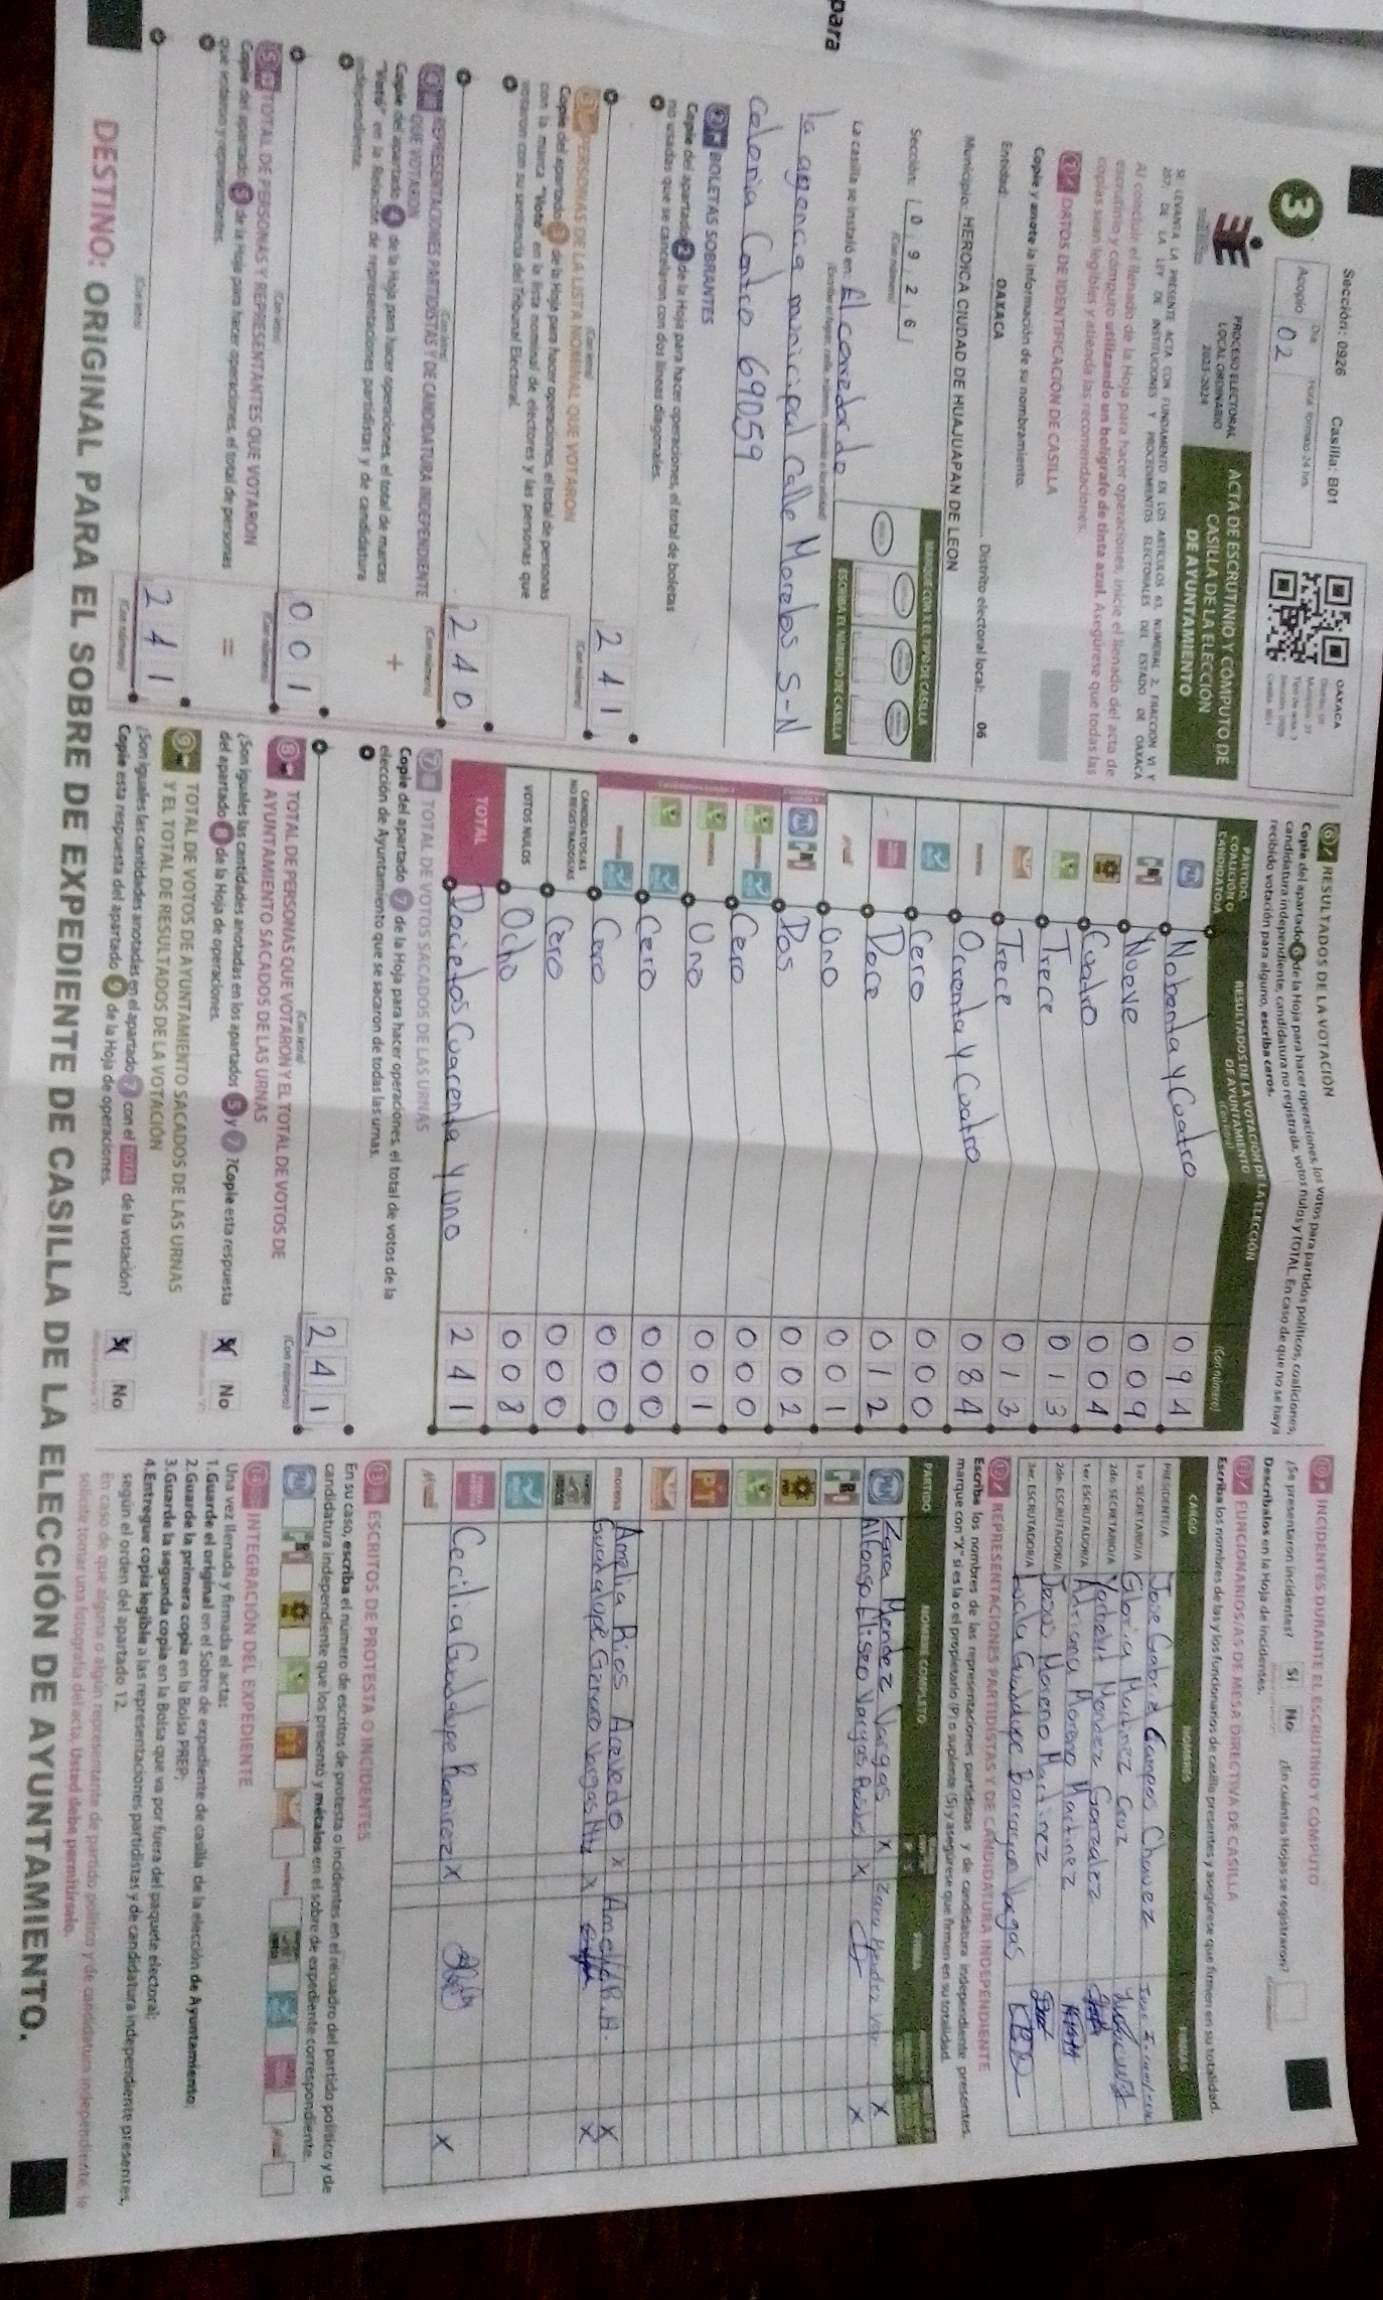 para
Sección: 0926 Casilla: B01
3
Acopio
Día
Hora formato 24 hrs.
02
OAXACA
PROCESO ELECTORAL
LOCAL ORDINARIO
2023-2024
ACTA DE ESCRUTINIO Y CÓMPUTO DE
CASILLA DE LA ELECCIÓN
DE AYUNTAMIENTO
SE LEVANTA LA PRESENTE ACTA CON FUNDAMENTO EN LOS ARTÍCULOS 63, NUMERAL 2, FRACCIÓN VI Y
207, DE LA LEY DE INSTITUCIONES Y PROCEDIMIENTOS ELECTORALES DEL ESTADO DE OAXACA
Al concluir el llenado de la Hoja para hacer operaciones, inicie el llenado del acta de
escrutinio y cómputo utilizando un bolígrafo de tinta azul. Asegúrese que todas las
copias sean legibles y atienda las recomendaciones.
1 DATOS DE IDENTIFICACIÓN DE CASILLA
Copie y anote la información de su nombramiento.
Entidad: OAXACA Distrito electoral local: 06
Municipio: HEROICA CIUDAD DE HUAJUAPAN DE LEON
Sección: 0 9 2 6
(Con número)
MARQUE CON X EL TIPO DE CASILLA
ESCRIBA EL NÚMERO DE CASILLA
La casilla se instaló en: El corredor de
la agencia municipal Calle Morelos S-N
Colonia Centro 69059
2 BOLETAS SOBRANTES
Copie del apartado 2 de la Hoja para hacer operaciones, el total de boletas
no usadas que se cancelaron con dos líneas diagonales.
241
(Con letra) (Con número)
3 PERSONAS DE LA LISTA NOMINAL QUE VOTARON
Copie del apartado 3 de la Hoja para hacer operaciones, el total de personas
con la marca "Votó" en la lista nominal de electores y las personas que
votaron con su sentencia del Tribunal Electoral.
240
(Con letra) (Con número)
4 REPRESENTACIONES PARTIDISTAS Y DE CANDIDATURA INDEPENDIENTE
QUE VOTARON
Copie del apartado 4 de la Hoja para hacer operaciones, el total de marcas
"Votó" en la Relación de representaciones partidistas y de candidatura
independiente.
+
001
(Con letra) (Con número)
5 TOTAL DE PERSONAS Y REPRESENTANTES QUE VOTARON
Copie del apartado 5 de la Hoja para hacer operaciones, el total de personas
que votaron y representantes.
=
241
(Con letra) (Con número)
6 RESULTADOS DE LA VOTACIÓN
Copie del apartado 6 de la Hoja para hacer operaciones, los votos para partidos políticos, coaliciones,
candidatura independiente, candidatura no registrada, votos nulos y TOTAL. En caso de que no se haya
recibido votación para alguno, escriba ceros.
PARTIDO, COALICIÓN O CANDIDATO/A
RESULTADOS DE LA VOTACIÓN DE LA ELECCIÓN
DE AYUNTAMIENTO
(Con letra) (Con número)
PAN Nobenta y Cuatro 094
PRI Nueve 009
PRD Cuatro 004
Trece 013
Trece 013
morena Ocrenta y Cuatro 084
Cero 000
Doce 012
Uno 001
PAN PRI Dos 002
Cero 000
Uno 001
Cero 000
Cero 000
CANDIDATOS/AS NO REGISTRADOS/AS Cero 000
VOTOS NULOS Ocho 008
TOTAL Docietos Cuarenta y uno 241
7 TOTAL DE VOTOS SACADOS DE LAS URNAS
Copie del apartado 7 de la Hoja para hacer operaciones, el total de votos de la
elección de Ayuntamiento que se sacaron de todas las urnas.
241
(Con letra) (Con número)
8 TOTAL DE PERSONAS QUE VOTARON Y EL TOTAL DE VOTOS DE
AYUNTAMIENTO SACADOS DE LAS URNAS
¿Son iguales las cantidades anotadas en los apartados 5 y 7? Copie esta respuesta
del apartado 8 de la Hoja de operaciones.
No
9 TOTAL DE VOTOS DE AYUNTAMIENTO SACADOS DE LAS URNAS
Y EL TOTAL DE RESULTADOS DE LA VOTACIÓN
¿Son iguales las cantidades anotadas en el apartado 7 con el TOTAL de la votación?
Copie esta respuesta del apartado 9 de la Hoja de operaciones.
No
10 INCIDENTES DURANTE EL ESCRUTINIO Y CÓMPUTO
¿Se presentaron incidentes? Sí No ¿En cuántas Hojas se registraron?
Descríbalos en la Hoja de incidentes.
11 FUNCIONARIOS/AS DE MESA DIRECTIVA DE CASILLA
Escriba los nombres de las y los funcionarios de casilla presentes y asegúrese que firmen en su totalidad.
CARGO NOMBRES FIRMAS
PRESIDENTE/A Jose Gabriel Campos Chavez
1er. SECRETARIO/A Gloria Martinez Cruz
2do. SECRETARIO/A Yaribeht Mendez Gonzalez
1er. ESCRUTADOR/A Adriana Moreno Martinez
2do. ESCRUTADOR/A Jesus Moreno Martinez
3er. ESCRUTADOR/A Lucila Guadalupe Barragan Vargas
12 REPRESENTACIONES PARTIDISTAS Y DE CANDIDATURA INDEPENDIENTE
Escriba los nombres de las representaciones partidistas y de candidatura independiente presentes,
marque con "X" si es la o el propietario (P) o suplente (S) y asegúrese que firmen en su totalidad.
PARTIDO NOMBRE COMPLETO P S FIRMA
PAN Zara Mendez Vargas X X
Alfonso Eliseo Vargas X X
PRI
PRD
PT
morena Amelia Rios Acevedo X Amelia R.A. X
Guadalupe X X
Cecilia Guadalupe Ramirez X X
13 ESCRITOS DE PROTESTA O INCIDENTES
En su caso, escriba el número de escritos de protesta o incidentes en el recuadro del partido político y de
candidatura independiente que los presentó y métalos en el sobre de expediente correspondiente.
14 INTEGRACIÓN DEL EXPEDIENTE
Una vez llenada y firmada el acta:
1.Guarde el original en el Sobre de expediente de casilla de la elección de Ayuntamiento;
2.Guarde la primera copia en la Bolsa PREP;
3.Guarde la segunda copia en la Bolsa que va por fuera del paquete electoral;
4.Entregue copia legible a las representaciones partidistas y de candidatura independiente presentes,
según el orden del apartado 12.
En caso de que alguna o algún representante de partido político y de candidatura independiente, le
solicite tomar una fotografía del acta, Usted debe permitírselo.
DESTINO: ORIGINAL PARA EL SOBRE DE EXPEDIENTE DE CASILLA DE LA ELECCIÓN DE AYUNTAMIENTO.